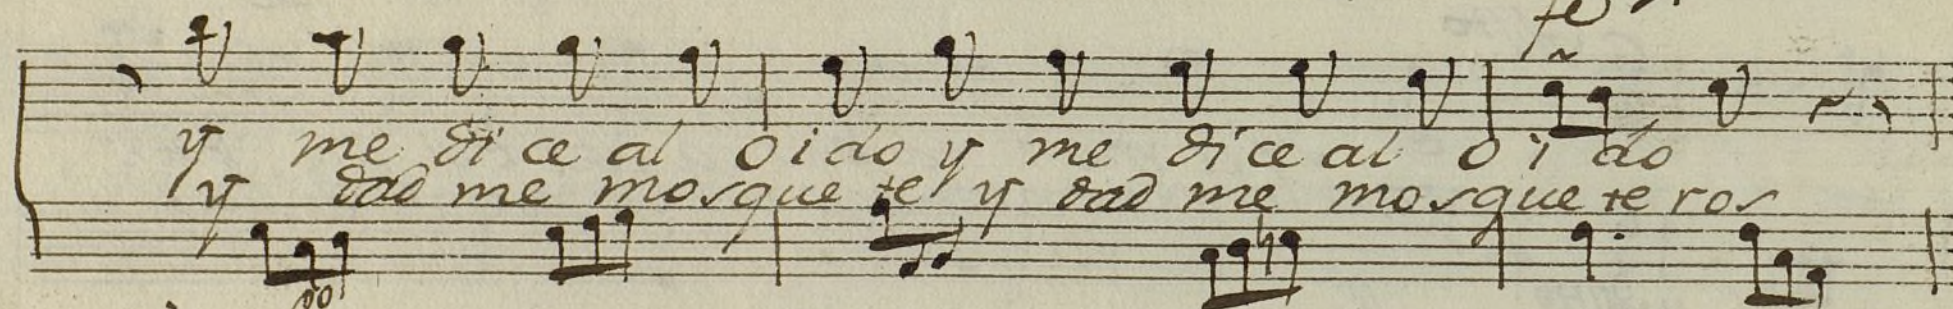 fe
y me dice al oido y me dice al oido
y dad me mosquete y dad me mosqueteros
po